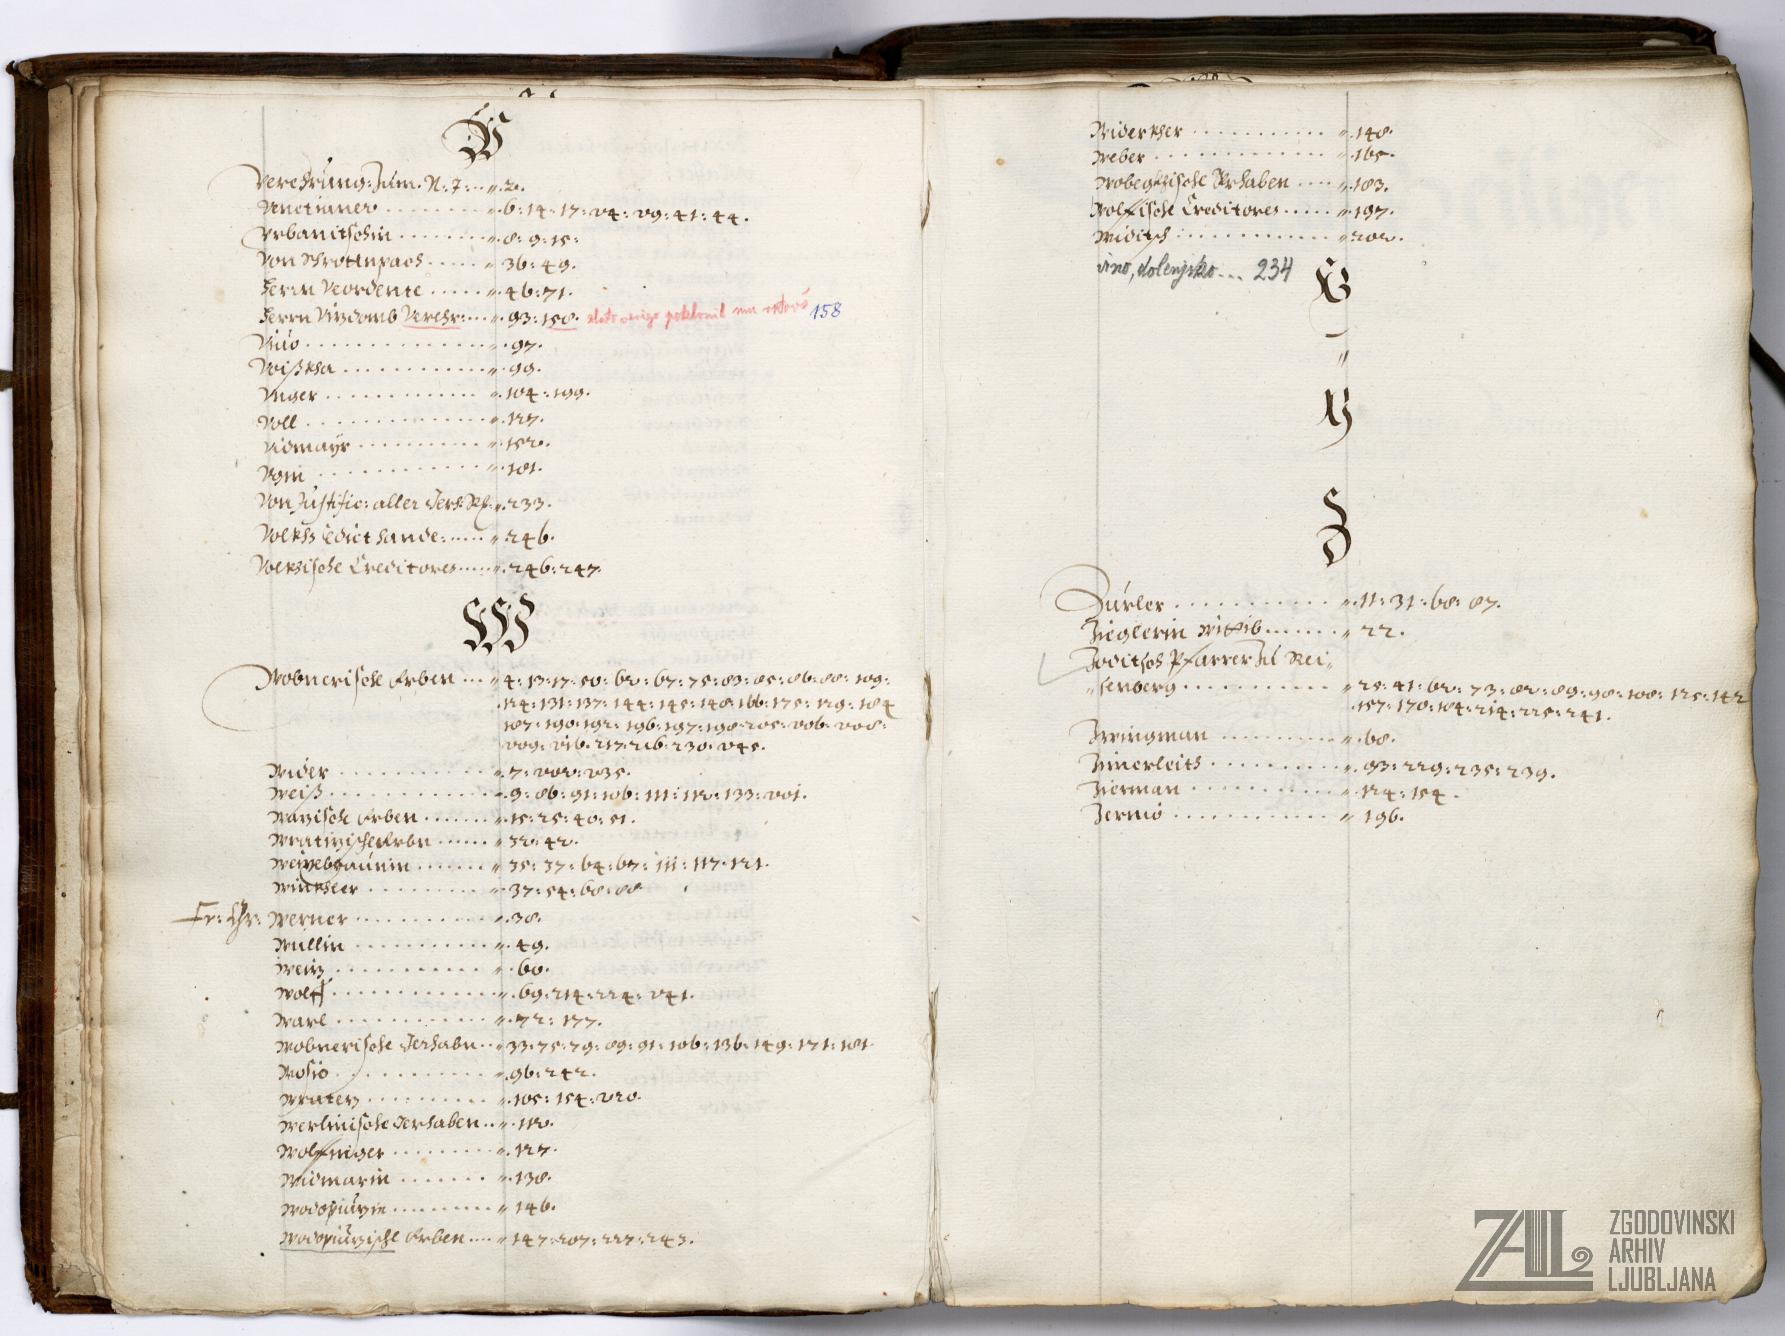 V
Verehrung: Zum. N: J: „ 2.
Venetianer „ 6: 14: 17: 24: 29: 41: 44.
Vrbanitschin „ 8: 9: 15:
Von Schrottnpach „ 36: 49.
Herrn Verdente „ 46: 71.
Herrn Vizdomb Verehr: „ 93: 158. zlato verigo poklonil mu 158
Viio „ 97.
Voißkha „ 99.
Vnger „ 104: 199.
Voll „ 127.
Vidmayr „ 152.
„ 181.
Von Justific: aller „ 233.
Volkhs Edict „ 246.
Volkhische Creditores „ 246: 247.
W
Wobnerische Erben „ 4: 13: 17: 50: 62: 67: 75: 83: 85: 86: 88: 109:
124: 131: 137: 144: 145: 148: 166: 175: 179: 184
187: 190: 192: 196: 197: 198: 205: 206: 208:
209: 216: 217: 226: 230: 245.
Wider „ 7: 202: 235.
Weiß „ 9: 86: 91: 106: 111: 112: 133: 201.
Wazische Erben „ 15: 25: 40: 51.
„ 32: 42.
„ 35: 37: 64: 67: 111: 117: 121.
Winkhler „ 37: 54: 68: 88
Fr: Chr: Werner „ 38.
Wullin „ 49.
Weiz „ 60.
Wolff „ 69: 214: 224: 241.
Warl „ 72: 177.
Wobnerische Gerhabn „ 33: 75: 79: 89: 91: 106: 136: 149: 171: 181.
Wosio „ 96: 242.
„ 105: 154: 220.
Werlinische Gerhaben „ 112.
Wolfinger „ 127.
Widmarin „ 138.
Wodopiuzin „ 146.
Wodopiuzische Erben „ 147: 207: 227: 243.
Widerkher „ 148.
Weber „ 165.
Gerhaben „ 183.
Wolfische Creditores „ 197.
Widitsch „ 202.
vino, dolenjsko... 234
X
Y
Z
Zurler „ 11: 31: 68: 87.
Zieglerin Wittib „ 22.
Zoditsch Pfarrer zu Rei„
„ 25: 41: 62: 73: 82: 89: 98: 108: 125: 142
157: 170: 184: 214: 225: 241.
Zwingman „ 68.
Zinerleits „ 93: 229: 235: 239.
Zierman „ 124: 154.
Zernio „ 196.
ZAL ZGODOVINSKI
ARHIV
LJUBLJANA